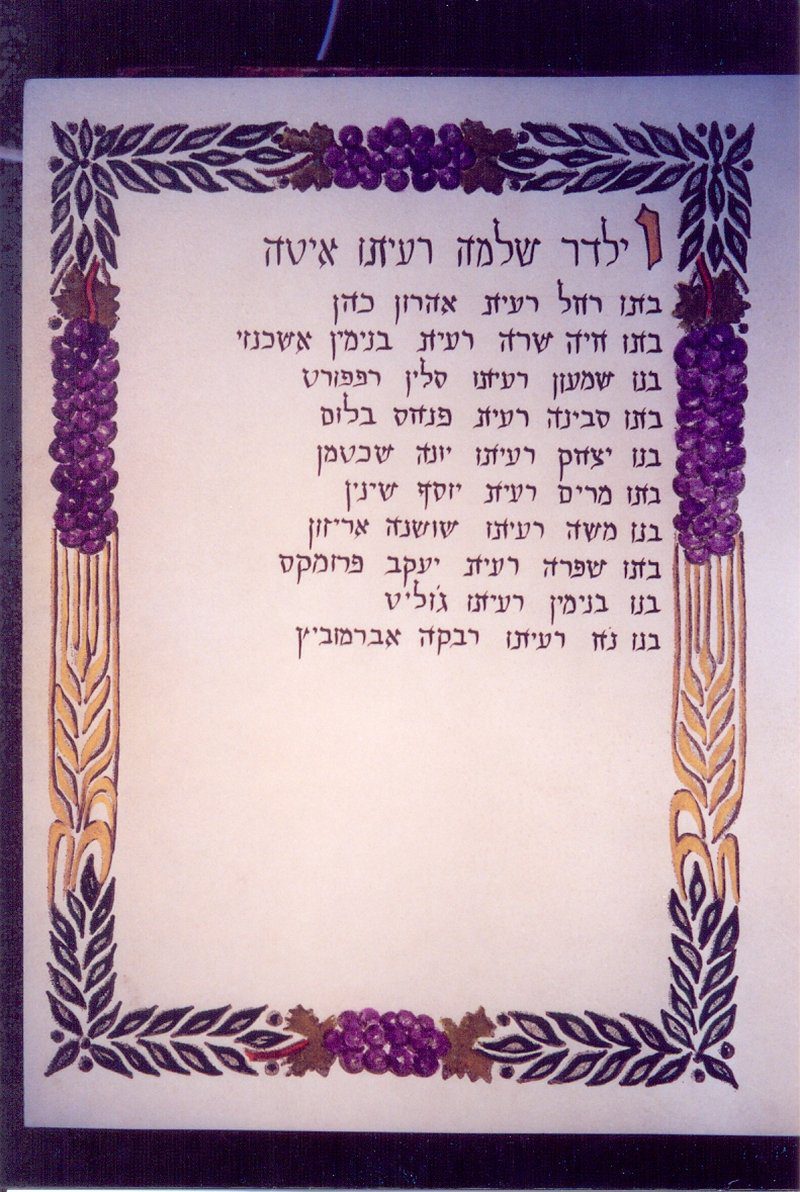 וילדר שלמה רעיתו איטה
בתו רחל רעית אהרון כהן
בתו חיה שרה רעית בנימין אשכנזי
בנו שמעון רעיתו סלין רפפורט
בתו סבינה רעית פנחס בלום
בנו יצחק רעיתו יונה שכטמן
בתו מרים רעית יוסף שינין
בנו משה רעיתו שושנה אריזון
בתו שפרה רעית יעקב פרומקס
בנו בנימין רעיתו ג'וליט
בנו נח רעיתו רבקה אברמוביץ